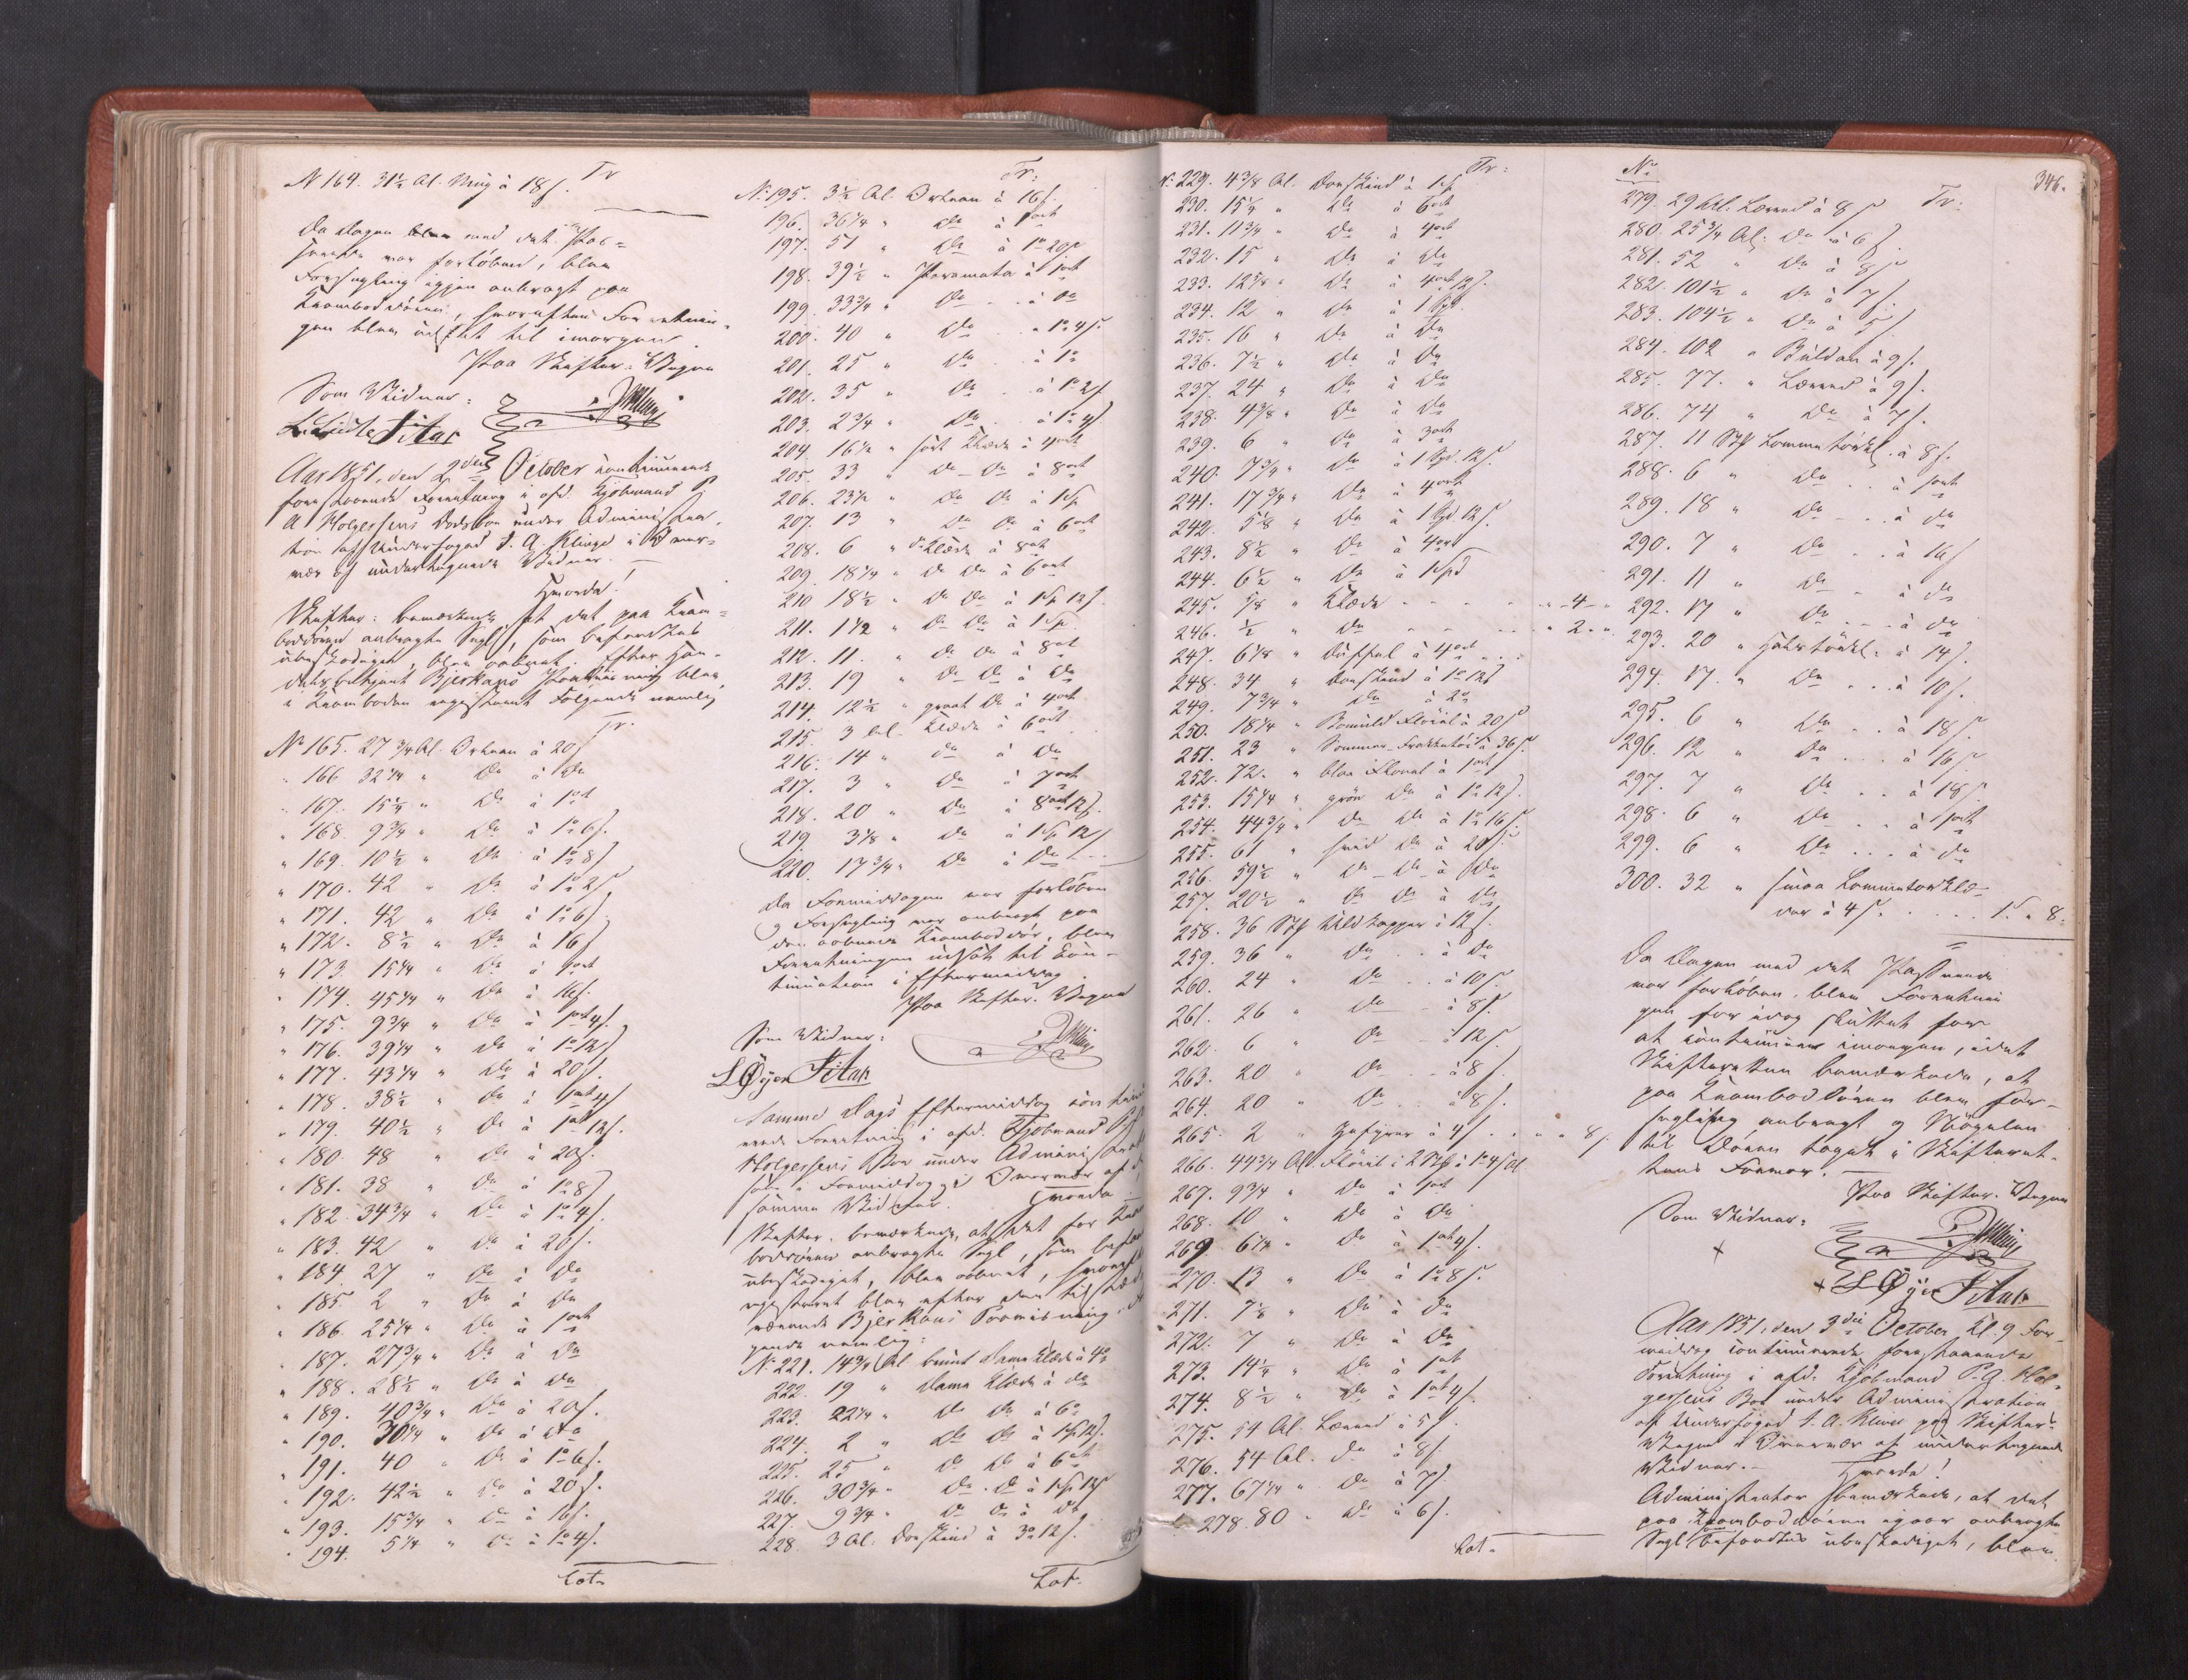 Tr
N 164. 31½ Al. Multum à 18 s.
Da Dagen med det Pas=
serede var forløben, blev
Forsegling igjen anbragt paa
Krambod døren, hvorefter Forretnin-
gen blev udsat til imorgen.
Paa Skifter: Vegne
Som Vidner:
Aar 1851, den 2den October continuerede
forestaaende Forretning i afd. Kjøbmand P
A Holgersens Dodsbo under Administra
tion
nær af undertegnede Vidner.
Hvorda!
Skifter: bemærkede, at det paa Kram=
boddøren anbragte Segl, som befandtes
ubeskadiget, blev aabnet. Efter Han-
delsbetjent Bjerkaas Paaviisning blev
i Kramboden registreret Følgende nemlig
Tr.
No 165. 27 3/4 Al. Orlean à 20 s
" 166 32 1/4 " Do à Do
" 167. 15½ " Do à 1 ort
" 168. 9 3/4 " Do à 1 o 6 s.
" 169. 10½ " Do à 1 o 8 s
" 170. 42 " Do à 1 o 2 s
" 171. 42 " Do à 1 o 6 s
" 172. 8½ " Do à 16 s
" 173. 15 1/4 " Do à 1 ort
" 174. 45 1/4 " Do à 16 s.
" 175. 9 3/4 " Do à 1 ort 4 s.
" 176. 39 1/4 " Do à 1 o 12 s
" 177. 43 1/4 " Do à 20 s.
" 178. 38½ " Do à 1 ort 4 s
" 179. 40½ " Do à 1 ort 12 s.
" 180. 48 " Do à 20 s.
" 181. 38 " Do à 1 o 8 s
" 182. 34 3/4 " Do à 1 o 4 s.
" 183. 42 " Do à 20 s.
" 184. 27 " Do à Do
" 185. 2 " Do à Do
" 186. 25 1/4 " Do à 1 ort
" 187. 27 3/4 " Do à Do
" 188. 28½ " Do à Do
" 189. 40 3/4 " Do à 20 s.
" 190. 30 1/4 " Do à Do
" 191. 40 " Do à 1 o 6 s.
" 192. 42½ " Do à 20 s.
" 193. 15 3/4 " Do à 16 s.
" 194. 5 1/4 " Do à 1 o 4 s.
Lat.
Tr:
No. 195. 3½ Al. Orlean à 16 s.
196. 36 1/4 " Do à 1 ort
197. 51 " Do à 1 o 20 s
198. 39½ " Paramata à 1 ort
199. 33 3/4 " Do . . à Do
200. 40 " Do . . à 1 o 4 s.
201. 25 " Do . à 1 o
202. 35 " Do . à 1 o 2 s
203. 2 3/4 " Do . à 1 o 4 s
204. 16½ " sort Klæde à 4 ort
205. 33 " Do Do à 8 ort
206. 23½ " Do Do à 1 Sp
207. 13 " Do Do à 6 ort
208. 6 " Do Klæde à 8 ort
209. 18 1/4 " Do Do à 6 ort
210 18½ " Do Do à 1 Sp 12 s.
211. 1½ " Do Do à 1 Sp.
212. 11. " Do Do à 8 ort
213. 19 " Do Do à Do
214. 12½ " graat Do à 4 ort
215. 3 Al. Klæde à 6 ort
216. 14 " Do à Do
217. 3 " Do à 7 ort
218. 20 " Do à 8 ort 12 s.
219. 3 1/8 " Do à 1 Sp 12 s
220. 17 3/4 " Do à Do
Da Formiddagen var forløben
og Forsegling var anbragt paa
den aabnede Kramboddør, blev
Forretningen udsat til Con-
tinuation i Eftermiddag.
Paa Skifter. Vegne
Som Vidner:
L Øyen
Samme Dags Eftermiddag
nerede Forretning i afd. Kjøbmand
Holgersens Boe under Administra
som i Formiddag
samme Vidner. Hvorda
Skifter. bemærkede, at det for
boddøren anbragte Segl, som
ubeskadiget, blev aabnet,
registreret blev efter den
værende Bjerkaas Paaviisning.
gende nemlig:
No. 221. 14 3/4 Al bruunt Dame Klæde à 4 o
222. 19 " Dame Klæde à Do
223. 22 1/4 " Do Do à 6 o
224. 2 " Do Do à 1 Sp 12 s.
225. 25 " Do Do à 6 ort
226. 30 3/4 " Do Do à 1 Sp 12 s
227. 9 3/4 " Do Do à Do
228. 3 Al. Doeskind à 3 o 12 s.
Lat.
Tr:
No. 229. 4 3/8 Al. Doeskind à 1 Sp
230. 15½ " Do à 6 ort
231. 11 3/4 " Do à 4 ort
232. 15 " Do à Do
233. 12 3/4 " Do à 4 ort 12 s.
234. 12 " Do à 1 Spd.
235. 16 " Do à Do
236. 7½ " Do à Do
237. 24 " Do à Do
238. 4 3/8 " Do à Do
239. 6 " Do à 3 ort
240. 7 3/4 " Do à 1 Spd. 12 s.
241. 17 3/4 " Do à 4 ort
242. 5 1/8 " Do à 1 Spd 12 s.
243. 8½ " Do à 4 ort
244. 6½ " Do à 1 Spd
245. 5/8 " Klæde - - - - - 4 -
246. ½ " Do - - - - - 2 -
247. 6 1/8 " Düffel à 4 ort
248. 34 " Doeskind à 1 o 12 s
249. 7 3/4 " Do à 2 o
250. 18 1/4 " Bomuld Fløiel à 20 s
251. 23 " Sommer-Frakketøi à 36 s.
252. 72. " blaa Flonel à 1 ort
253. 15 1/4 " grøn Do à 1 o 12 s.
254. 44 3/4 " Do Do à 1 o 16 s.
255. 61 " hvid Do à 20 s.
256. 59½ " Do Do à Do
257. 20½ " Do Do à Do
258. 36 Stk Uld kapper à 12 s.
259. 36 " Do . . à Do
260. 24 " Do . . à 10 s.
261. 26 " Do - à 8 s.
262. 6 " Do - à 12 s
263. 20 " Do - à 8 s.
264. 20 " Do . . à 8 s.
265. 2 " à 4 s . . . " " 8.
266. 44 3/4 Al. Fløiel i 2 Stk à 1 o 4 s Al
267. 9 3/4 " Do à 1 ort
268. 10 " Do à Do
269. 6 1/4 " Do à 1 ort 4 s.
270. 13 " Do à 1 o 8 s.
271. 7 1/8 " Do à Do
272. 7 " Do à Do
273. 14½ " Do à 1 ort
274. 8½ " Do à 1 ort 4 s.
275. 54 Al. Lærred à 5 s.
276. 54 Al. Do à 8 s.
277. 67 1/4 " Do à 7 s.
278. 80 " Do à 6 s.
Lat.
346.
No Tr:
279. 29 Al. Lærred à 8 s
280. 25 3/4 Al. Do à 6 s.
281. 52 " Do à 8 s
282. 101½ " Do à 7 s.
283. 104½ " Do à 5 s
284. 102 " Buldan à 9 s.
285. 77. " Lærred à 9 s.
286. 74 " Do à 7 s.
287. 11 Stk Lommetørkl. à 8 s.
288. 6 " Do . . à 1 ort
289. 18 " Do - . . à Do
290. 7 " Do . . à 16 s
291. 11 " Do - . à Do
292. 17 " Do . . . à Do
293. 20 " Halstørkl. à 14 s.
294. 17. " Do . . . à 10 s.
295. 6 " Do . . à 18 s.
296. 12 " Do . . . à 16 s
297. 7 " Do . . à 18 s.
298. 6 " Do . . à 1 ort
299. 6 " Do . . . à Do
300. 32 " smaa Lommetørklæ-
der à 4 s. . . . . 1. " 8.
Da Dagen med det Passerede
var forløben, blev Forretnin
gen for idag sluttet for
at continueres imorgen, idet
Skifteretten bemærkede, at
paa Kramboddøren blev for-
segling anbragt og Nøgelen
til Døren tagen i Skifteret-
tens Forvar.
Paa Skifter. Vegne
Som Vidner:
L Øyen
Aar 1851, den 3die October, Kl. 9 For-
middag continuerede forestaaende
Forretning i afd. Kjøbmand P. A. Hol-
gersens Boe under Administration
Vegne
Vidner. - Hvorda!
Administrator bemærkede, at det
paa Kramboddøren igaar anbragte
Segl befandtes ubeskadiget, blev